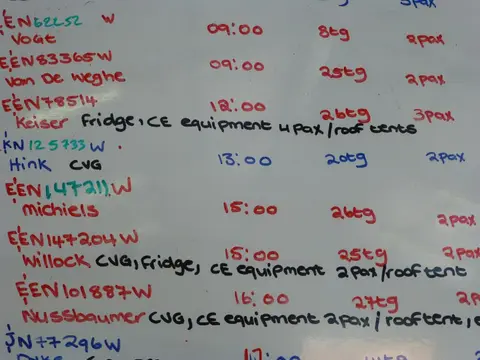 3pax
EEN62252 W
Vogt 09:00 8tg 2pax
EEN83365W
Van De Weghe 09:00 25tg 2pax
EEN78514 12:00 26tg 3pax
Keiser Fridge, CE equipment 4pax/roof tents
KN125733W
Hink CVG 13:00 20tg 2pax
EEN147211W
michiels 15:00 26tg 2pax
EEN147204W
Willock CVG, Fridge, CE equipment 2pax/rooftent
15:00 25tg 2pax
EEN101887W 16:00 27tg 2p
Nussbaumer CVG, CE equipment 2pax/rooftent,
77296W